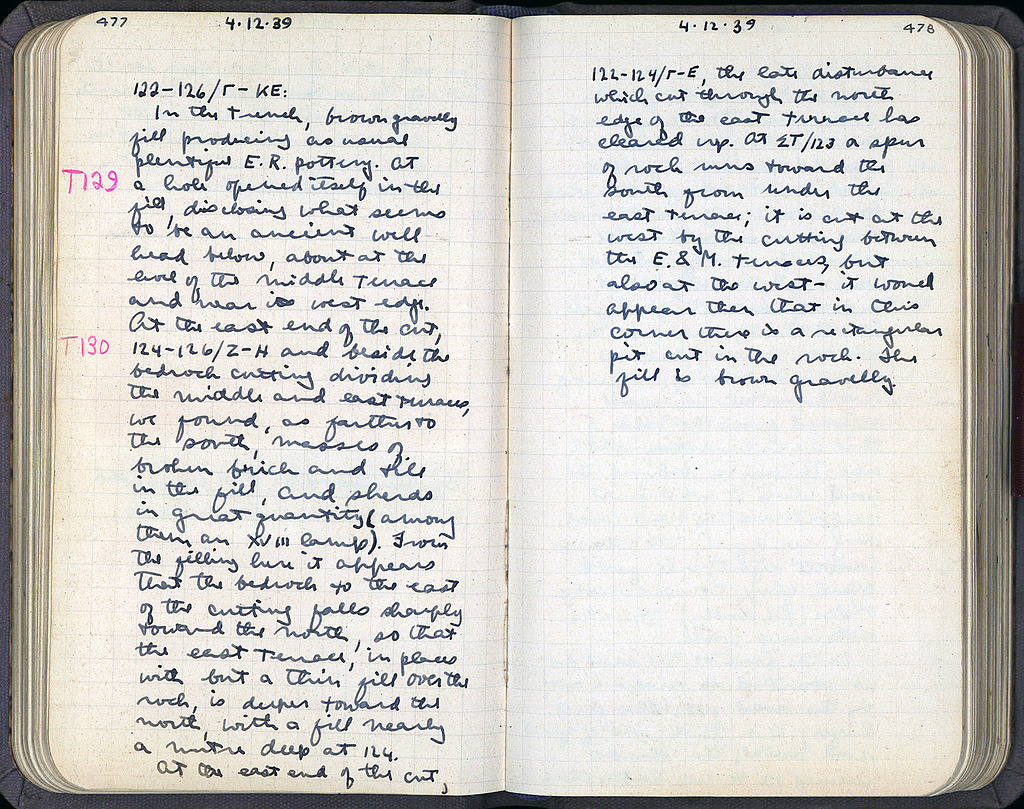 477
4·12·39
122-126/Γ-KE:
In the trench, brown gravelly
fill producing as usual
plentiful E.R. pottery. At
T129
a hole opened itself in the
fill, disclosing what seems
to be an ancient well
head below, about at the
level of the middle terrace
and near its west edge.
At the east end of the cut,
T130
124-126/Z-H and beside the
bedrock cutting dividing
the middle and east terraces,
we found, as farther to
the south, masses of
broken brick and tile
in the fill, and sherds
in great quantity (among
them an XVIII lamp). From
the filling here it appears
that the bedrock to the east
of the cutting falls sharply
toward the north, so that
the east terrace, in places
with but a thin fill over the
rock, is deeper toward the
north, with a fill nearly
a metre deep at 124.
At the east end of the cut,
4·12·39
478
122-124/Γ-E, the late disturbance
which cut through the north
edge of the east terrace has
cleared up. At ΣT/123 a spur
of rock runs toward the
south from under the
east terrace; it is cut at the
west by the cutting between
the E. & M. terraces, but
also at the west - it would
appear then that in this
corner there is a rectangular
pit cut in the rock. The
fill is brown gravelly.